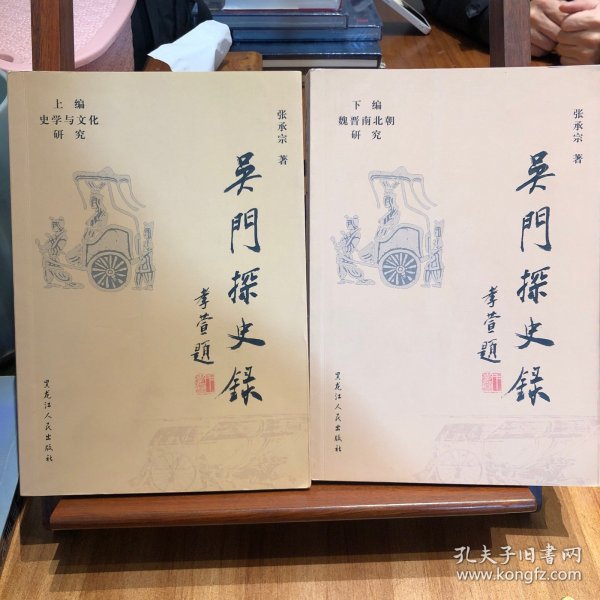 上编
史学与文化
研究
张承宗 著
吴門探史録
孝萱題
黑龙江人民出版社
下编
魏晋南北朝
研究
张承宗 著
吴門探史録
孝萱題
黑龙江人民出版社
孔夫子旧书网
www.kongfz.com